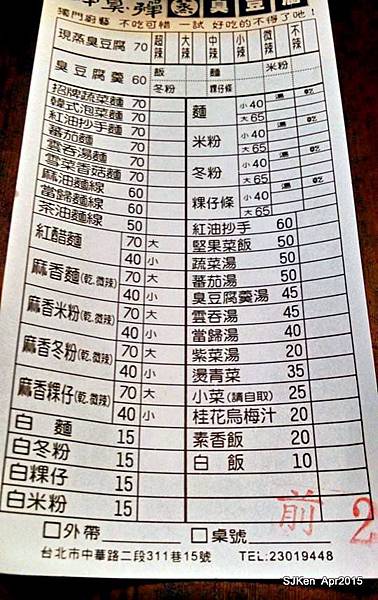 臭豆腐
獨門廚藝 不吃可惜 一試 好吃的不得了吔!
現蒸臭豆腐 70 超辣 大辣 中辣 小辣 微辣 不辣
臭豆腐羹 60 飯 麵 米粉 冬粉 粿仔條
招牌蔬菜麵 70
韓式泡菜麵 70
紅油抄手麵 70
蕃茄麵 70
雲吞湯麵 70
雪菜香菇麵 70
麻油麵線 60
當歸麵線 60
茶油麵線 50
紅醋麵 70 大 40 小
麻香麵(乾,微辣) 70 大 40 小
麻香米粉(乾,微辣) 70 大 40 小
麻香冬粉(乾,微辣) 70 大 40 小
麻香粿仔(乾,微辣) 70 大 40 小
白麵 15
白冬粉 15
白粿仔 15
白米粉 15
湯 乾
麵 小40 大65
米粉 小40 大65
冬粉 小40 大65
粿仔條 小40 大65
紅油抄手 60
堅果菜飯 50
蔬菜湯 50
蕃茄湯 50
臭豆腐羹湯 45
雲吞湯 45
當歸湯 40
紫菜湯 20
燙青菜 35
小菜(請自取) 25
桂花烏梅汁 20
素香飯 20
白飯 10
前 2
□外帶 □桌號
台北市中華路二段311巷15號 TEL:23019448
SJKen Apr2015